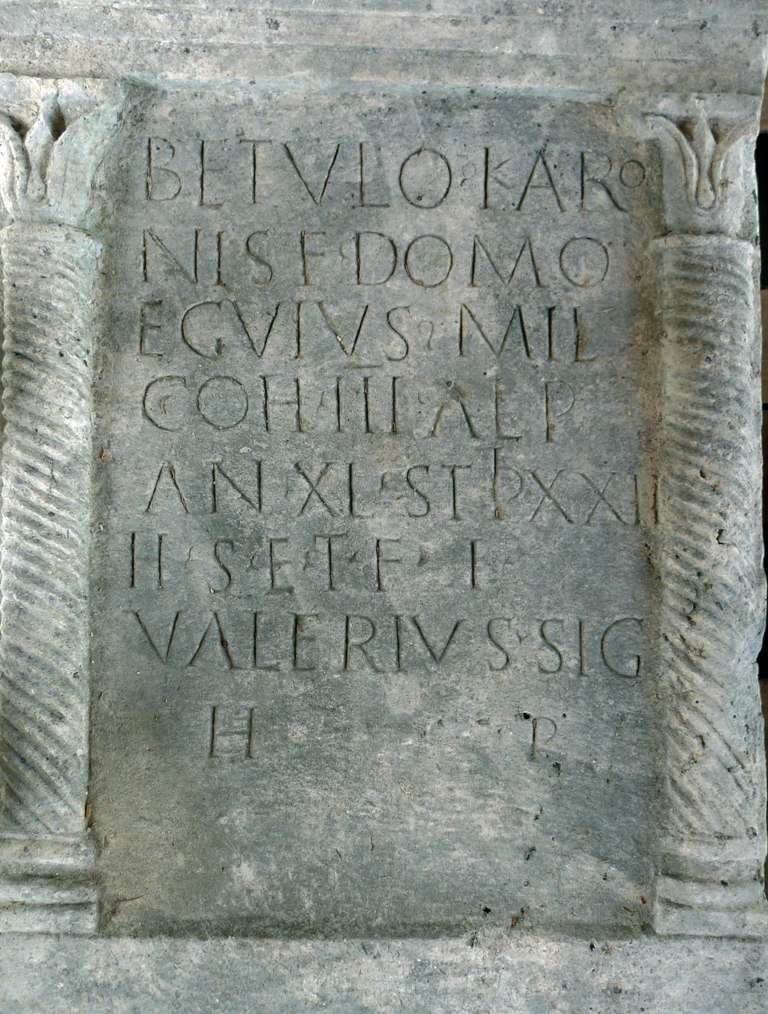 BETVLO·KARO
NIS F·DOMO
EGVIVS·MIL
COH·III·ALP
AN·XL·STP·XXII
H·S·E·T·F·I
VALERIVS·SIG
H P